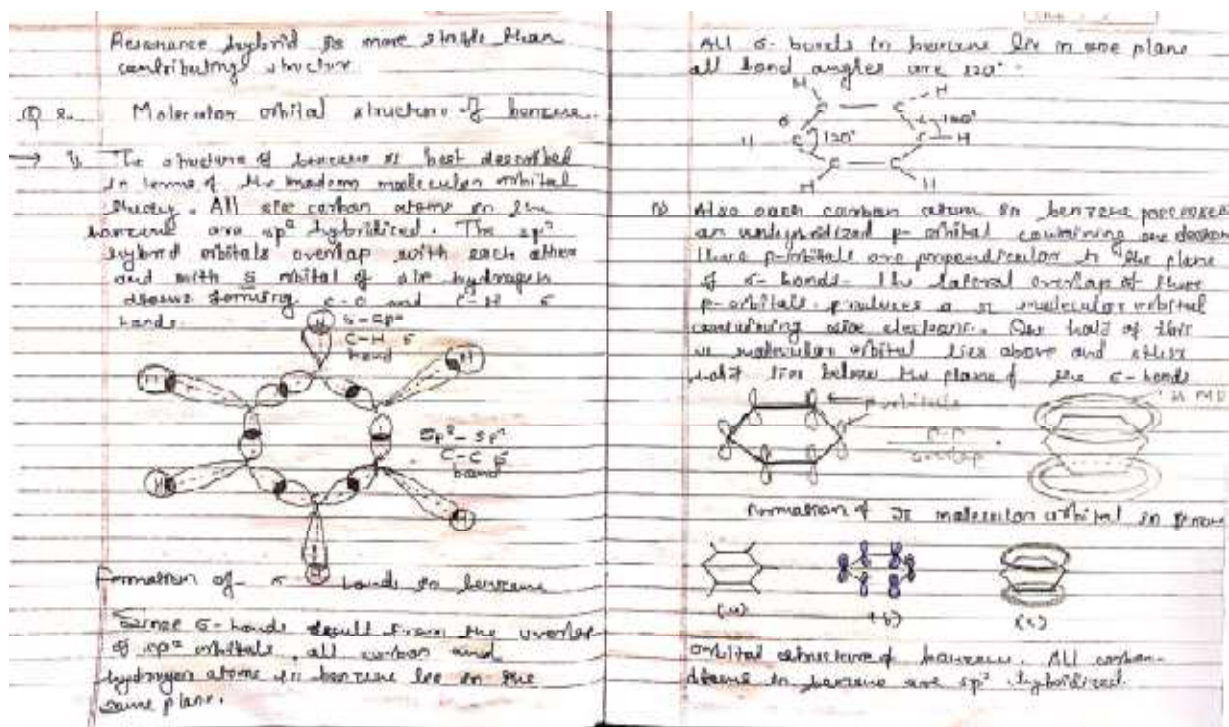 Resonance hybrid is more stable than
contributing structure.
Q 2. Molecular orbital structure of benzene.
→ i) The structure of benzene is best described
in terms of the modern molecular orbital
theory. All six carbon atoms in the
benzene are sp² hybridized. The sp²
hybrid orbitals overlap with each other
and with s orbital of six hydrogen
atoms forming C-C and C-H σ
bonds.
H
S-Sp²
C-H σ
bond
H
H
Sp²-Sp²
C-C σ
bond
H
H
H
Formation of σ bonds in benzene
Since σ-bonds result from the overlap
of sp² orbitals, all carbon and
hydrogen atoms in benzene lie in the
same plane.
All σ-bonds in benzene lie in one plane
all bond angles are 120°.
H H
C — C
σ 120°
H C 120° C — H
C — C
H H
Also each carbon atom in benzene possesses
an unhybridized p-orbital containing one electron
these p-orbitals are perpendicular to the plane
of σ-bonds. The lateral overlap of these
p-orbitals produces a π molecular orbital
containing six electrons. One half of this
π molecular orbital lies above and other
half lies below the plane of the σ-bonds
p-orbitals
π MO
P-P
overlap
Formation of π molecular orbital in
(a) (b) (c)
orbital structure of benzene. All carbon-
atoms in benzene are sp² hybridized.